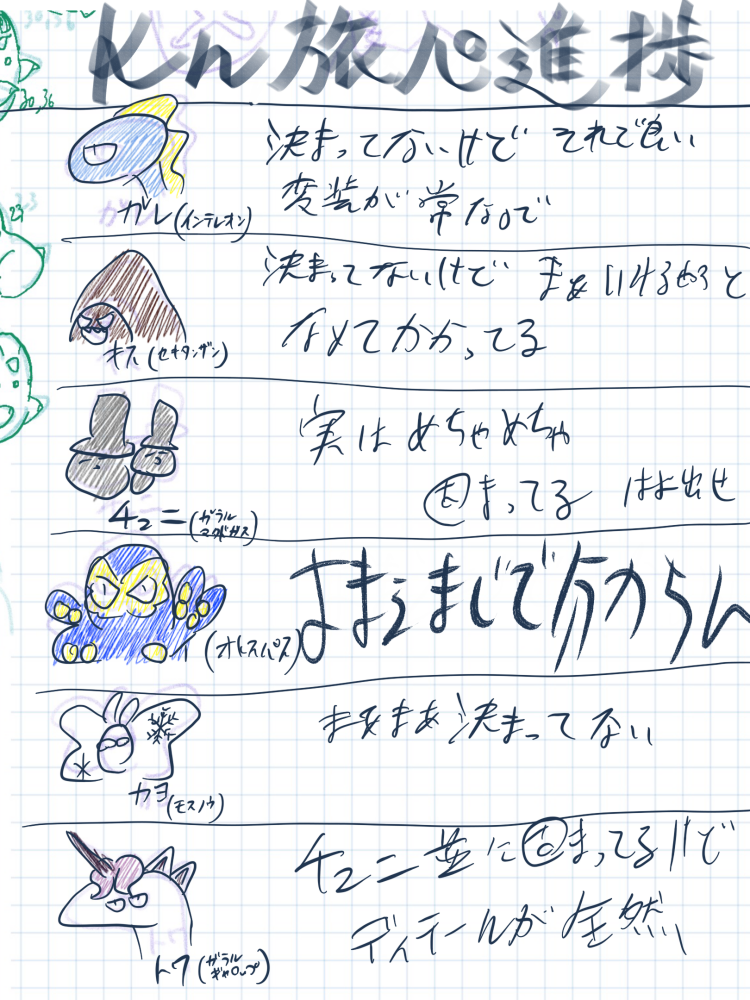 30,36
Kn旅パ進捗
30,36
決まってないけど それで良い
変装が常なので
ガレ(インテレオン)
23
決まってないけど まぁ いけるやろと
なめてかかってる
キス(セキタンザン)
実はめちゃめちゃ
固まってる はよ出せ
チュニ(ガラル
マタドガス)
おまえまじで分からん
イ(オトスパス)
まあまあ決まってない
カヨ(モスノウ)
チュニ並に固まってるけど
ディテールが全然
トワ(ガラル
ギャロップ)